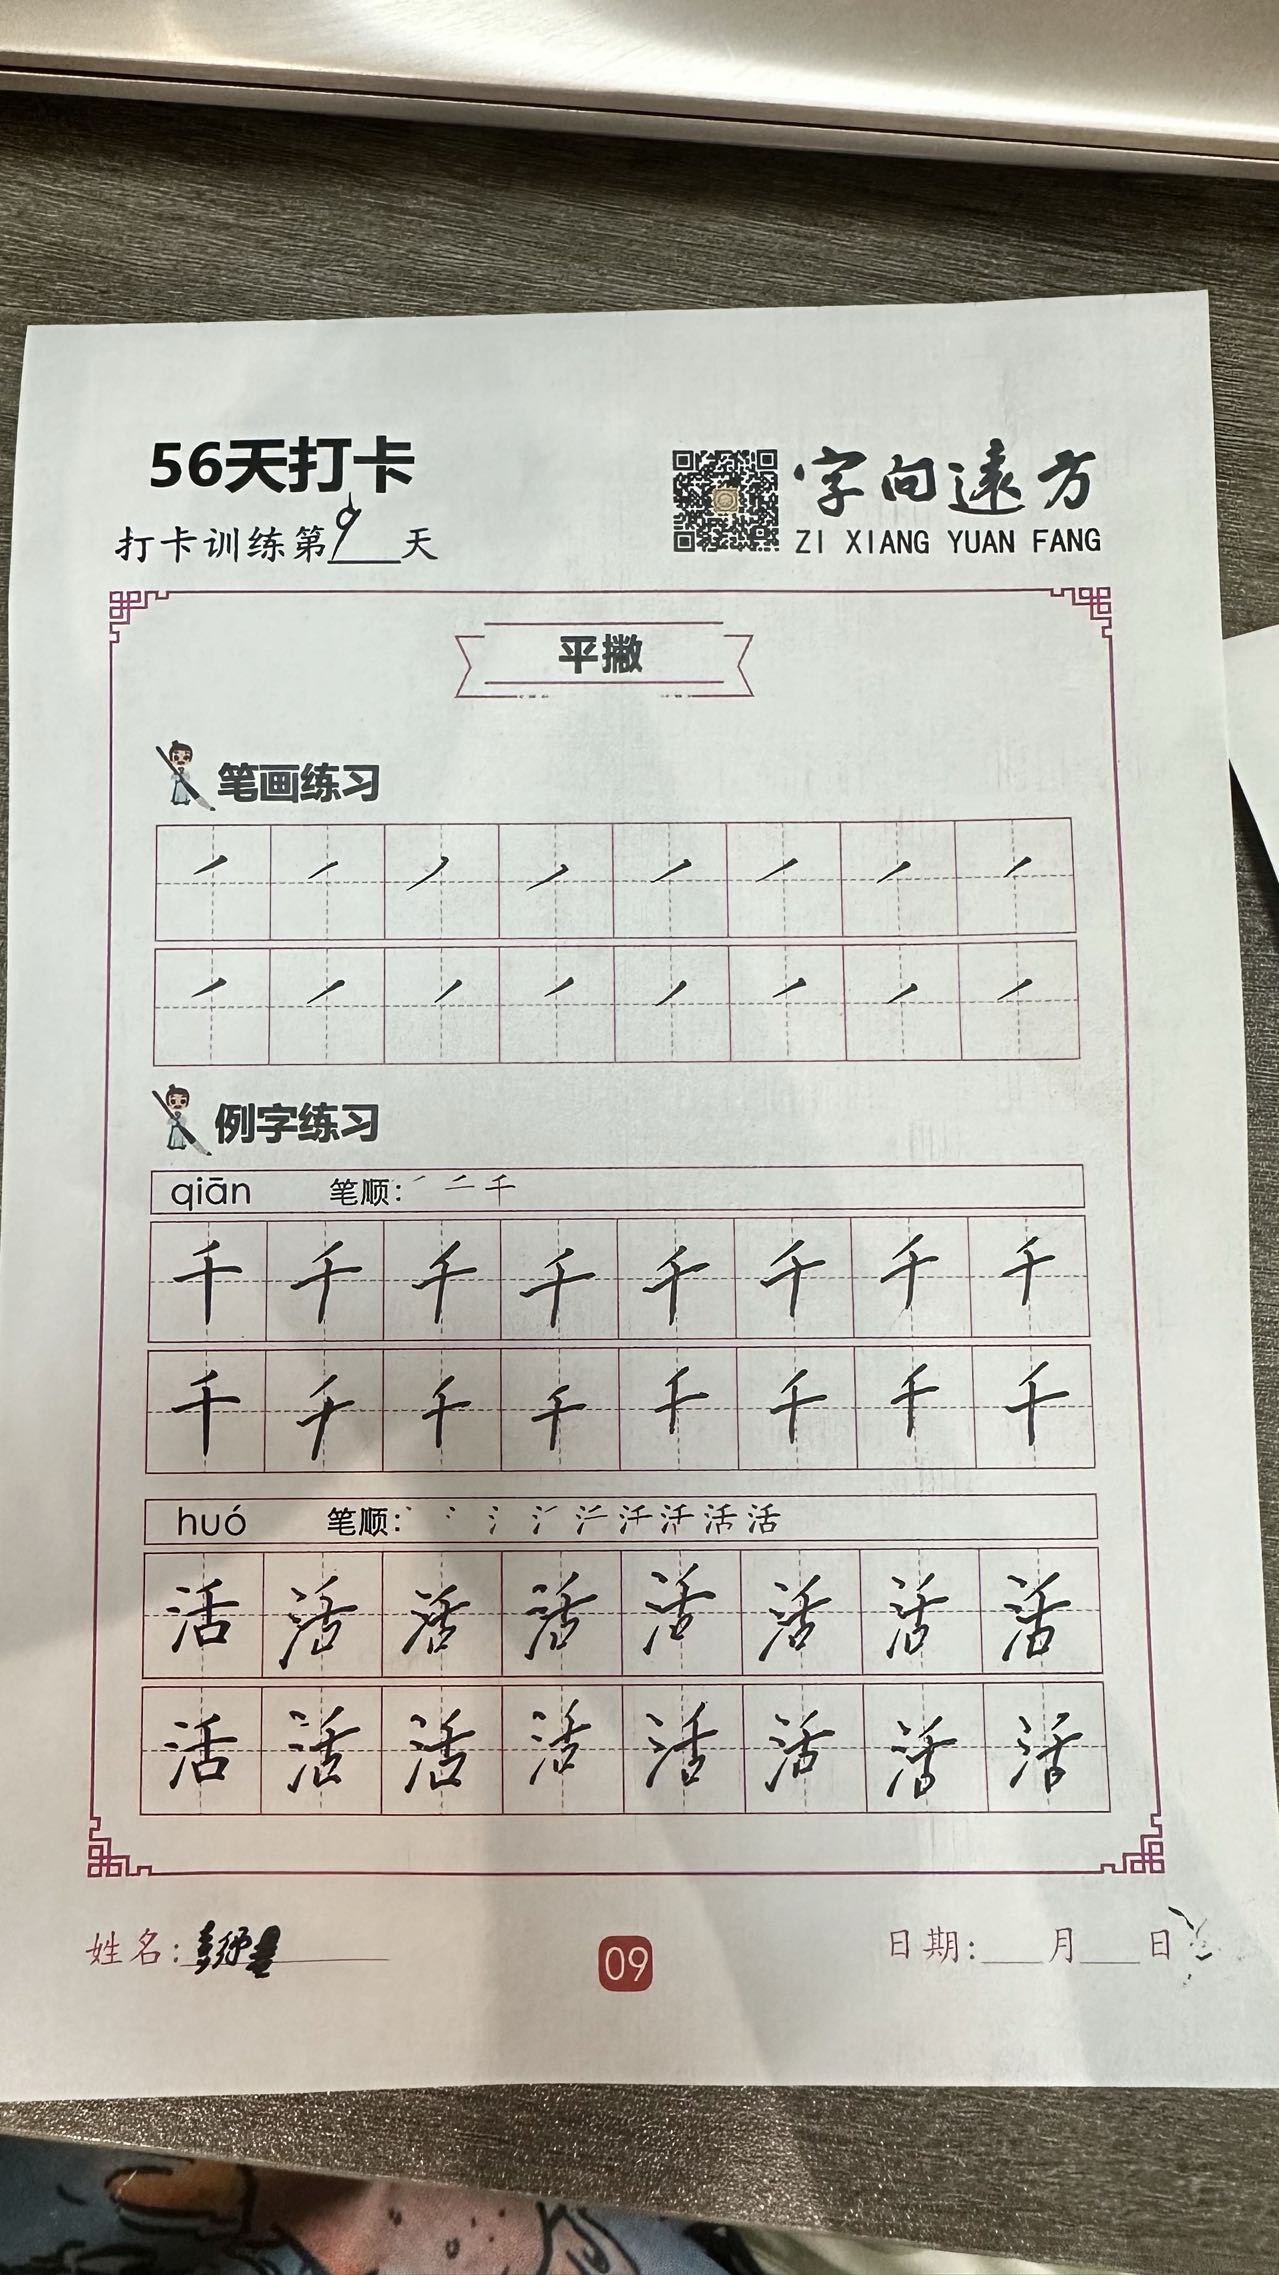 56天打卡
打卡训练第9天
字向遠方
ZI XIANG YUAN FANG
平撇
笔画练习
㇒ ㇒ ㇒ ㇒ ㇒ ㇒ ㇒ ㇒
㇒ ㇒ ㇒ ㇒ ㇒ ㇒ ㇒ ㇒
例字练习
qiān 笔顺: ㇒ 二 千
千 千 千 千 千 千 千 千
千 千 千 千 千 千 千 千
huó 笔顺: 活
活 活 活 活 活 活 活 活
活 活 活 活 活 活 活 活
姓名:
09
日期:___月___日